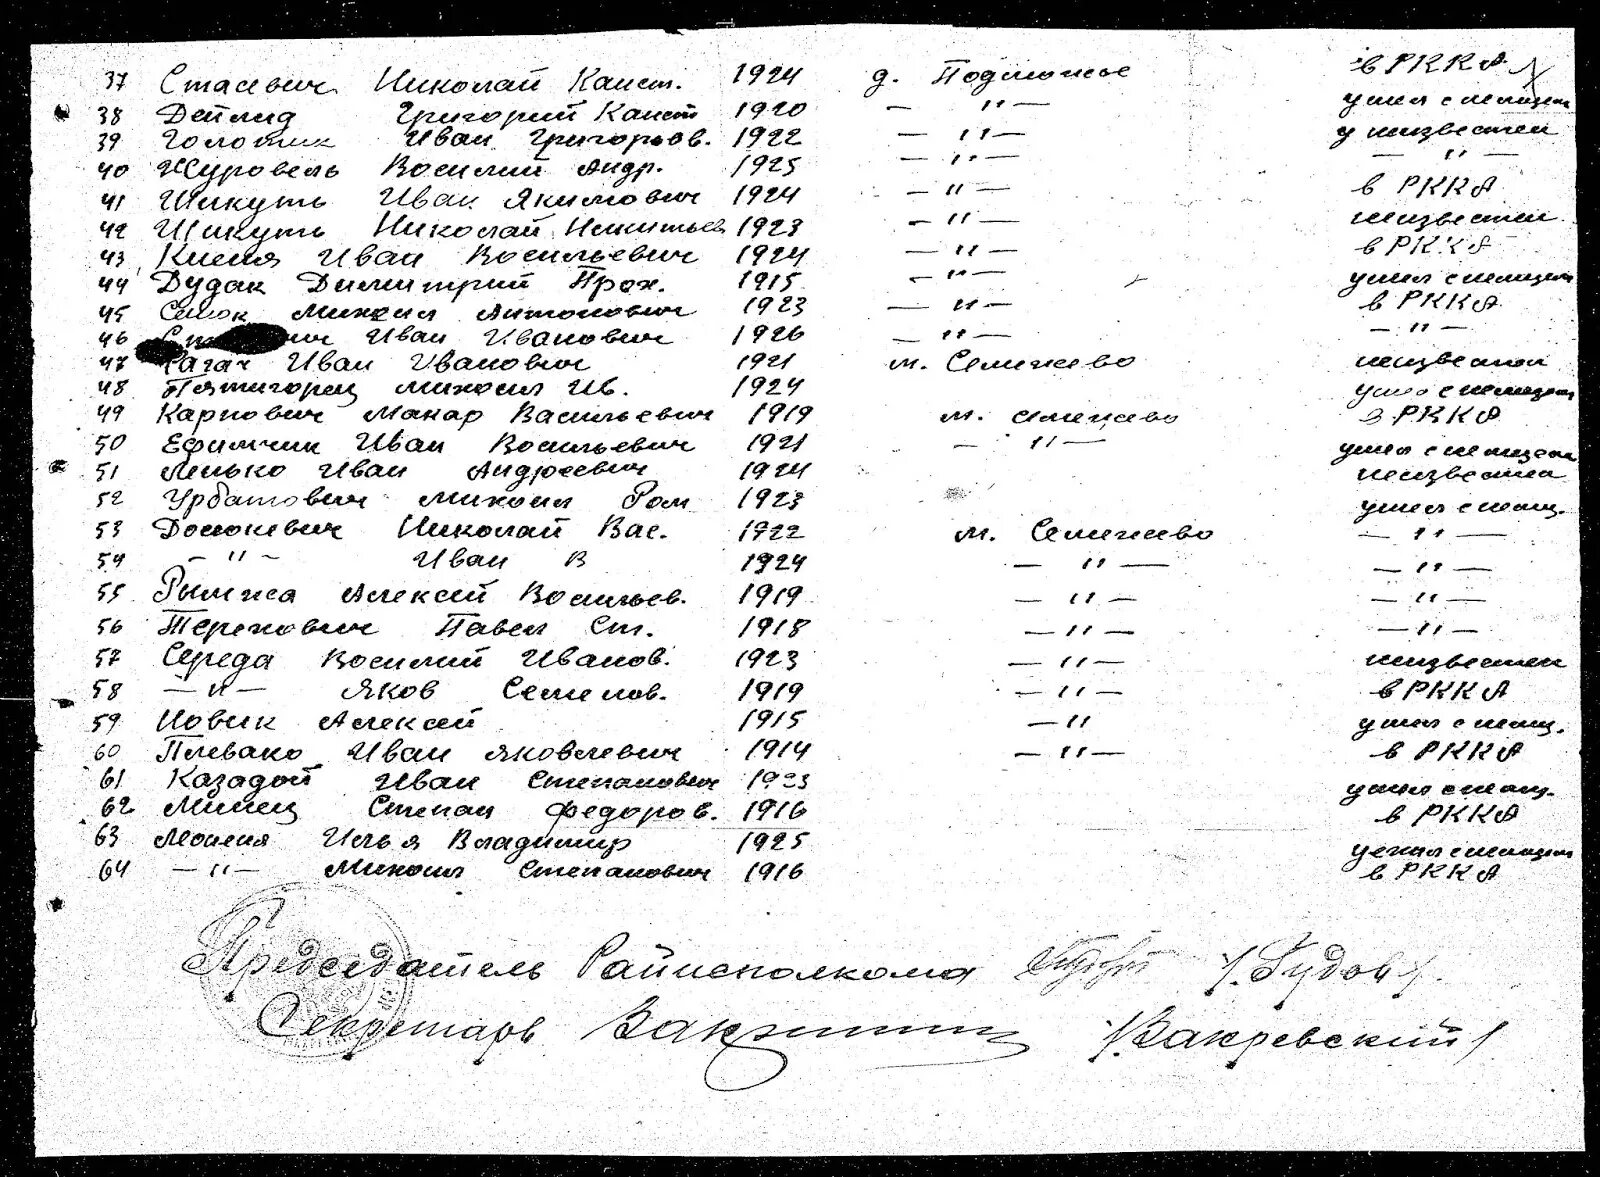 37 Стасевич Николай Конст. 1924 д. Подможье в РККА
38 Дейлид Григорий Конст 1920 — " — ушел с немцем
39 Голотик Иван Григорьев. 1922 — " — неизвестен
40 Журовель Василий Андр. 1925 — " — — " —
41 Шикуть Иван Якимович 1924 — " — в РККА
42 Шикуть Николай Никитьев 1923 — " — неизвестен
43 Иван Васильевич 1924 — " — в РККА
44 Дудак Дмитрий Прох. 1915 — " — ушел с немцем
45 Михаил Антонович 1923 — " — в РККА
46 Иван Иванович 1926 — " — — " —
47 Иван Иванович 1921 м. Семежево неизвестен
48 Пятигорец Михаил Ив. 1924 ушел с немцем
49 Карпович Макар Васильевич 1919 м. Семежево в РККА
50 Ефимчик Иван Васильевич 1921 — " — ушел с немцем
51 Ленько Иван Андреевич 1924 неизвестен
52 Урбатович Михаил Ром 1923 ушел с немц.
53 Николай Вас. 1922 м. Семежево — " —
54 — " — Иван В 1924 — " — — " —
55 Рымжа Алексей Васильев. 1919 — " — — " —
56 Терехович Павел Ст. 1918 — " — — " —
57 Середа Василий Иванов. 1923 — " — неизвестен
58 — " — Яков Семенов. 1919 — " — в РККА
59 Новик Алексей 1915 — " ушел с немц.
60 Плевако Иван Яковлевич 1914 — " — в РККА
61 Казадой Иван Степанович 1923 ушел с немц.
62 Минец Степан Федоров. 1916 в РККА
63 Илья Владимир 1925 ушел с немцем
64 — " — Михаил Степанович 1916 в РККА
Председатель Райисполкома /Гудов/.
Секретарь /Закревский/